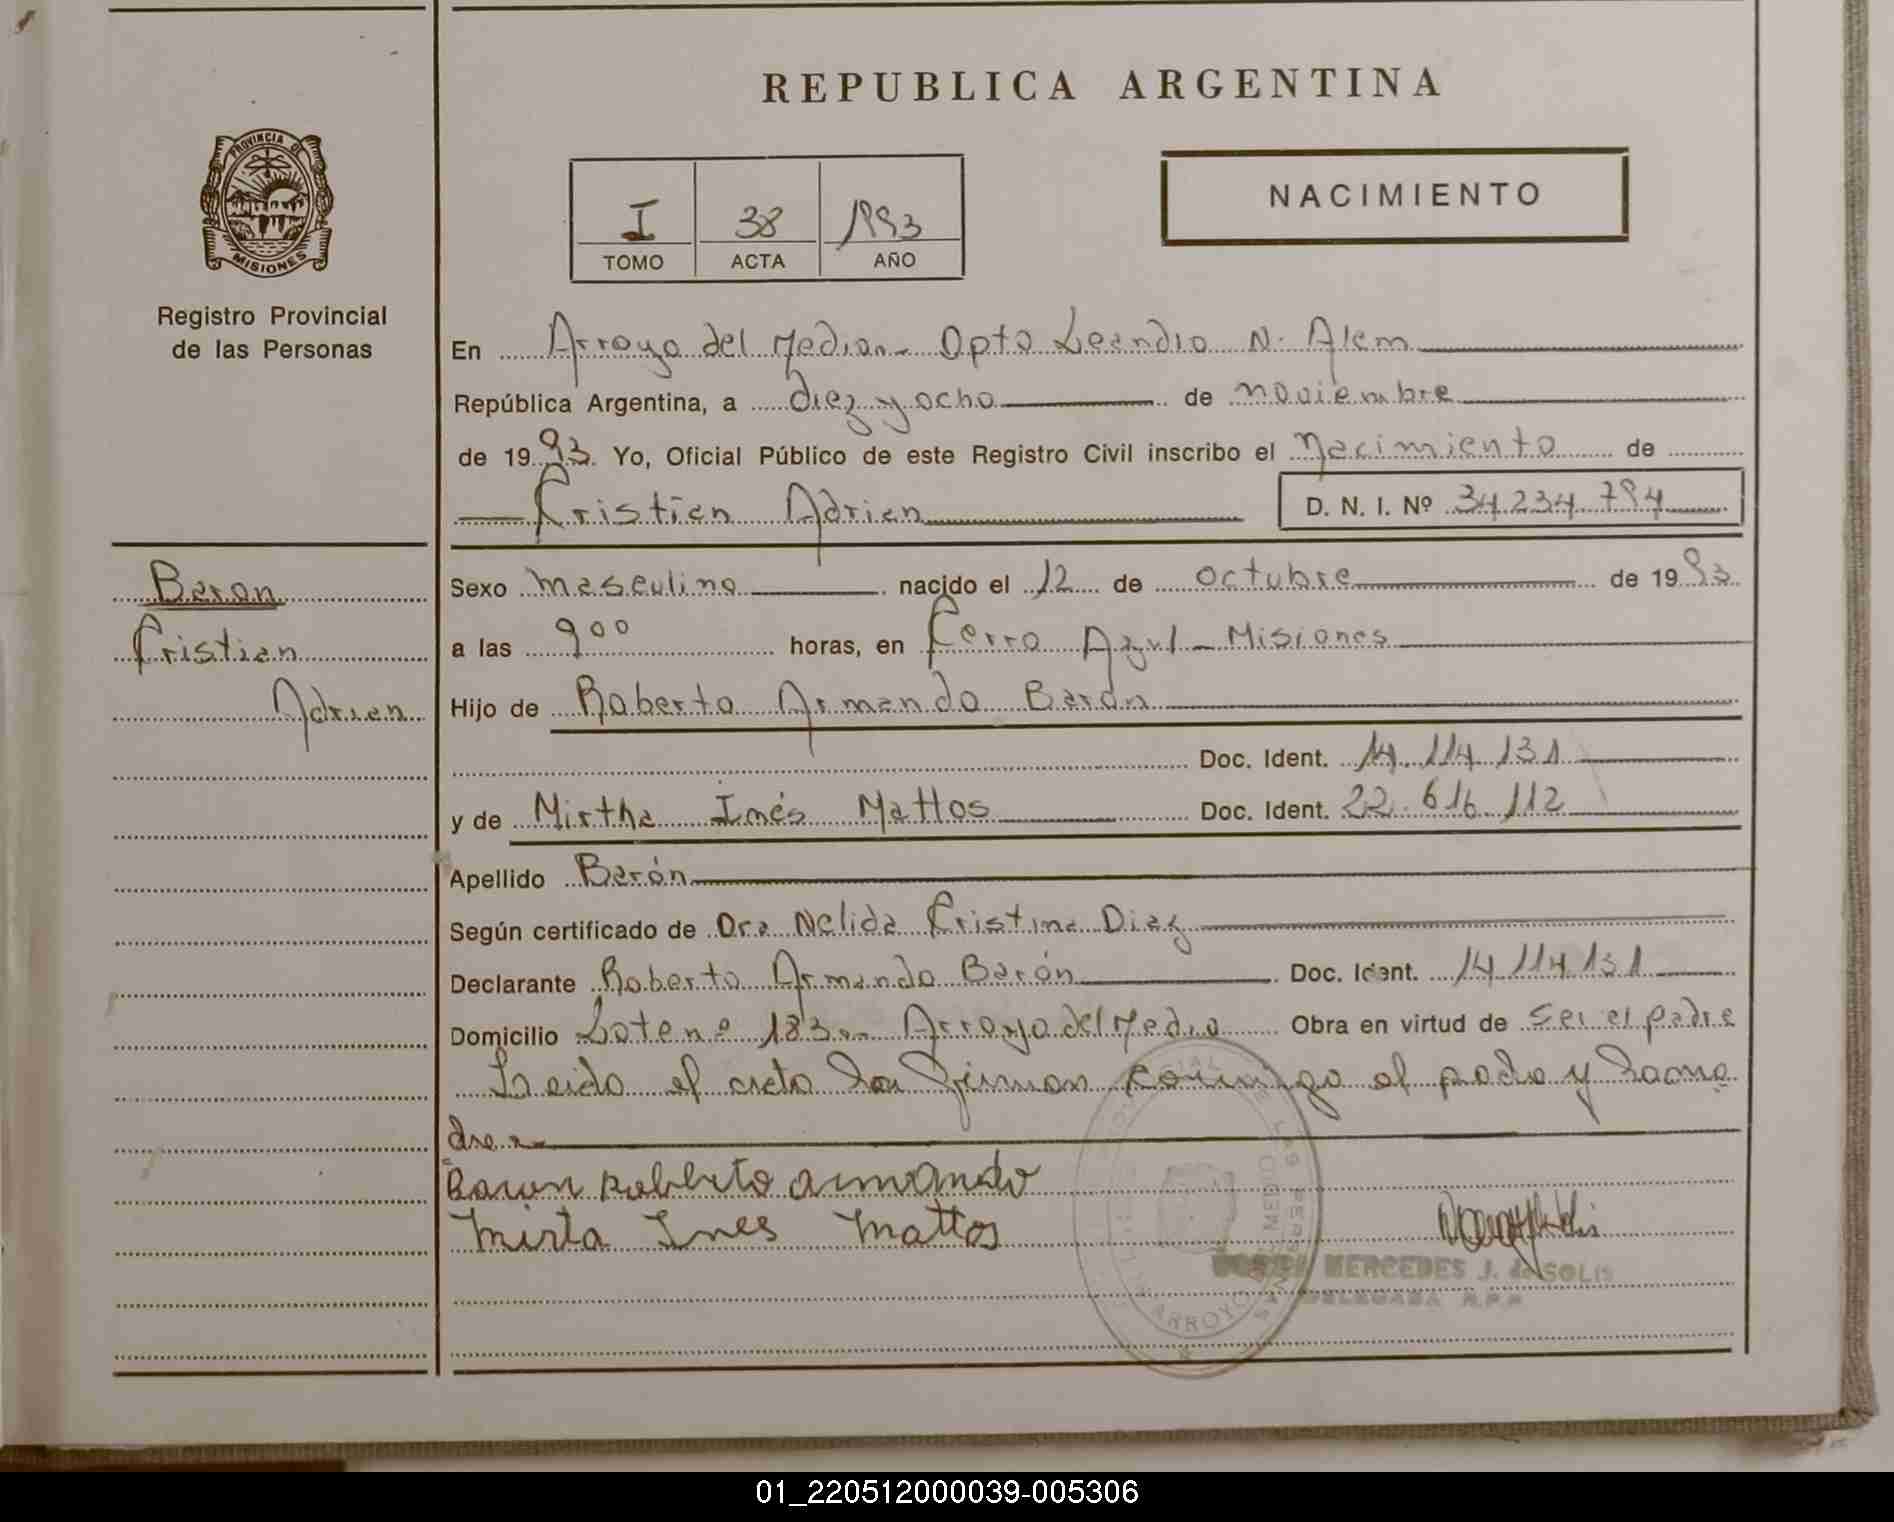 REPUBLICA ARGENTINA
PROVINCIA DE
MISIONES
Registro Provincial
de las Personas
NACIMIENTO
I 38 1993
TOMO ACTA AÑO
En Arroyo del Medio.- Dpto Leandro N. Alem
República Argentina, a diez y ocho de noviembre
de 1993. Yo, Oficial Público de este Registro Civil inscribo el Nacimiento de
Cristian Adrian D. N. I. Nº 34.234.794
Baron
Cristian
Adrian
Sexo masculino nacido el 12 de octubre de 1993
a las 9 00 horas, en Cerro Azul - Misiones
Hijo de Roberto Armando Barón
Doc. Ident. 14.114.131
y de Mirtha Inés Mattos Doc. Ident. 22.616.112
Apellido Barón
Según certificado de Dra Nelida Cristina Diaz
Declarante Roberto Armando Barón Doc. Ident. 14.114.131
Domicilio Lote nº 183.- Arroyo del Medio Obra en virtud de ser el padre
Leida el acta la firman conmigo el padre y la ma
dre.-
Baron Robberto armando
Mirta Ines Mattos
MERCEDES J. de SOLIS
DELEGADA R.P.P.
ARROYO MEDIO
01_220512000039-005306